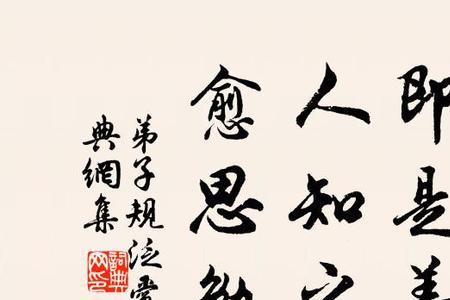 即是善
人知之
愈思勉
弟子規泛愛
典網集